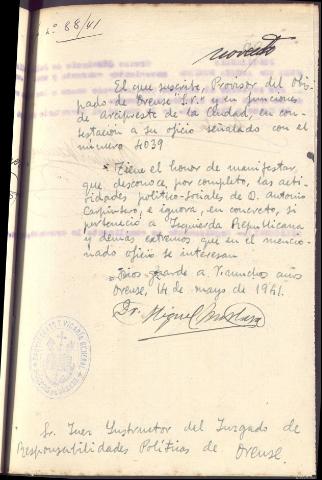 nº 88/41
noventa
El que suscribe, Provisor del Obis-
pado de Orense "S.P." y en funciones
de arcipreste de la Ciudad, en con-
testación a su oficio señalado con el
número 4039
Tiene el honor de manifestar,
que desconoce, por completo, las acti-
vidades político-sociales de D. Antonio
Carpintero, e ignora, en concreto, si
perteneció a Izquierda Republicana
y demás extremos que en el mencio-
nado oficio se interesan
Dios guarde a V. muchos años
Orense, 14 de mayo de 1941.
Dr. Miguel
Sr. Juez Instructor del Juzgado de
Responsabilidades Políticas de Orense.